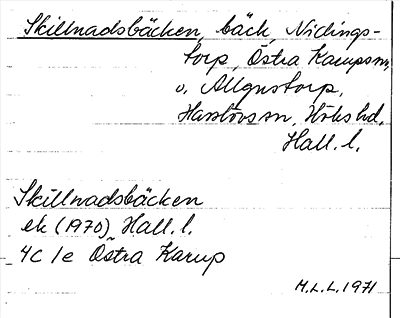 Skillnadsbäcken, bäck, Nidings-
torp, Östra Karups sn,
o. Allgustorp,
Hasslövs sn, Höks hd.
Hall. l.
Skillnadsbäcken
ek (1970) Hall. l.
4C 1e Östra Karup
M.L.L. 1971